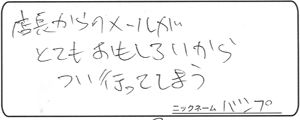 店長からのメールが
とてもおもしろいから
つい行ってしまう
ニックネーム バンプ